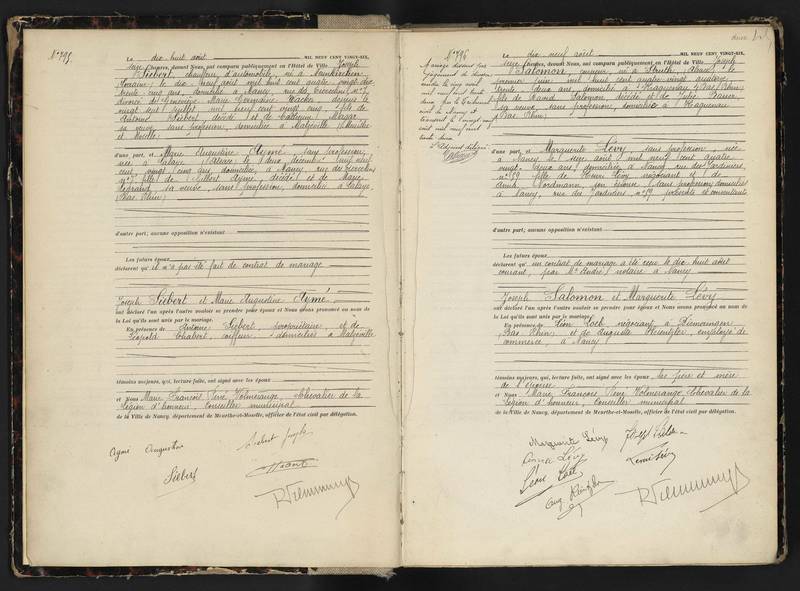 N° 795.
Le dix huit août MIL NEUF CENT VINGT-SIX,
heures, devant Nous, ont comparu publiquement en l'Hôtel de Ville Joseph
Siebert, chauffeur d'automobile, né à
Lorraine, le dix neuf août mil huit cent quatre vingt dix
trente cinq ans, domicilié à Nancy, rue des N° 7,
divorcé de Geneviève Marie Germaine Hacker, depuis le
vingt sept juillet mil neuf cent vingt cinq, fils de
Antoine Siebert décédé et de Catherine
sa veuve, sans profession, domiciliée à Malzéville (Meurthe
et Moselle
d'une part, et Marie Augustine Aymé, sans profession,
née à Lalaye (Alsace) le deux décembre mil neuf
cent, vingt cinq ans, domiciliée à Nancy, rue des
n° 7 fille de Aymé, décédé et de Marie
sa veuve, sans profession, domiciliée à Lalaye
(Bas Rhin)
d'autre part; aucune opposition n'existant
Les futurs époux
déclarent qu'il n'a pas été fait de contrat de mariage
Joseph Siebert et Marie Augustine Aymé
ont déclaré l'un après l'autre vouloir se prendre pour époux et Nous avons prononcé au nom de
la Loi qu'ils sont unis par le mariage.
En présence de Antoine Siebert, propriétaire, et de
Léopold Chabert, coiffeur, domiciliés à Malzéville
témoins majeurs, qui, lecture faite, ont signé avec les époux
et Nous Marie François René Volmerange, Chevalier de la
Légion d'honneur, Conseiller municipal
de la Ville de Nancy, département de Meurthe-et-Moselle, officier de l'état civil par délégation.
Aymé Augustine
Siebert Joseph
Siebert
N° 796
Mariage dissous par
jugement de divorce
rendu le cinq avril
mil neuf cent trente
deux par le tribunal
civil de Nancy et
transcrit le vingt sept
août mil neuf cent
trente deux
Le dix neuf août MIL NEUF CENT VINGT-SIX,
heures, devant Nous, ont comparu publiquement en l'Hôtel de Ville Joseph
Salomon, né à Struth, (Alsace) le
premier juin mil huit cent quatre vingt quatorze,
trente deux ans, domicilié à Haguenau (Bas Rhin)
fils de Salomon, décédé et de Julie
sa veuve, sans profession, domiciliée à Haguenau
(Bas Rhin)
d'une part, et Marguerite Lévy sans profession, née
à Nancy le seize août mil neuf cent quatre
vingt- deux ans, domiciliée à Nancy rue des Jardiniers,
n° 19 fille de Henri Lévy, négociant et de
Nordmann, son épouse, sans profession, domiciliés
à Nancy, rue des Jardiniers n° 19 présents et consentants
d'autre part; aucune opposition n'existant
Les futurs époux
déclarent qu'un contrat de mariage a été reçu le dix huit août
courant, par Me André, notaire à Nancy
Joseph Salomon et Marguerite Lévy
ont déclaré l'un après l'autre vouloir se prendre pour époux et Nous avons prononcé au nom de
la Loi qu'ils sont unis par le mariage.
En présence de Léon Loeb, négociant, à Diemeringen
(Bas Rhin) et de Auguste employé de
commerce, à Nancy
témoins majeurs, qui, lecture faite, ont signé avec les époux les père et mère
de l'épouse
et Nous Marie François René Volmerange, Chevalier de la
Légion d'honneur, Conseiller municipal
de la Ville de Nancy, département de Meurthe-et-Moselle, officier de l'état civil par délégation.
Marguerite Lévy
Lévy